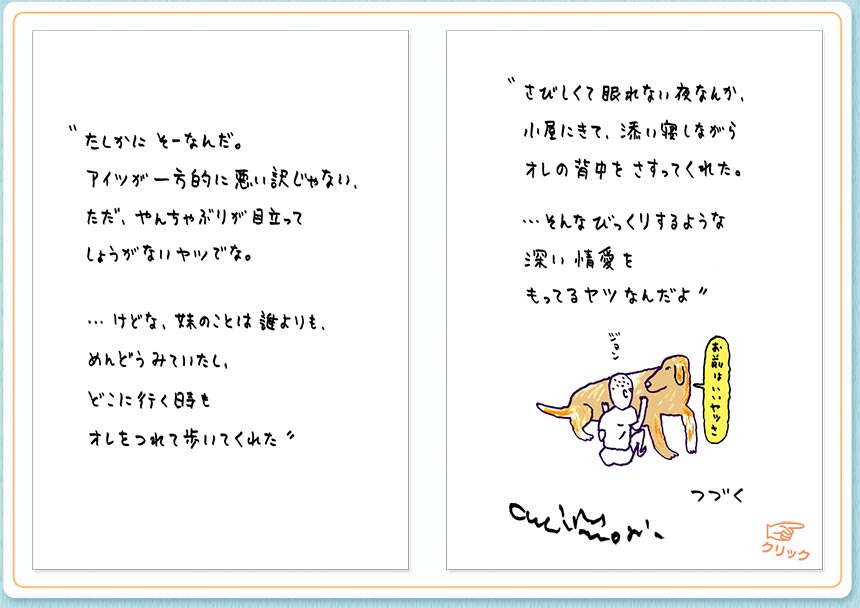 〝たしかに そーなんだ。
アイツが一方的に悪い訳じゃない、
ただ、やんちゃぶりが目立って
しょうがないヤツでな。
…けどな、妹のことは誰よりも、
めんどうみていたし、
どこに行く時も
オレをつれて歩いてくれた〞
〝さびしくて眠れない夜なんか、
小屋にきて、添い寝しながら
オレの背中をさすってくれた。
…そんなびっくりするような
深い情愛を
もってるヤツなんだよ〞
ジョン
お前はいいヤツさ
つづく
クリック